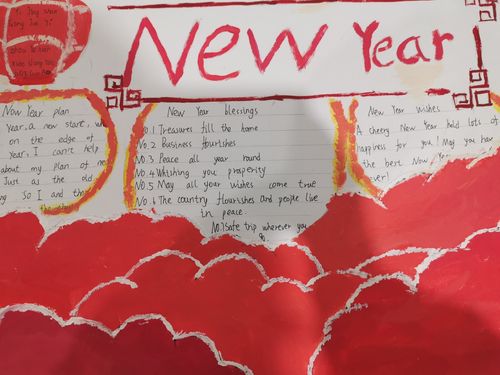 New Year
New Year plan
Year, a new start, wh
on the edge of
year, I can't help
about my plan of ne
Just as the old
So I and the
New Year blessings
No.1 Treasures fill the home
No.2 Business flourishes
No.3 Peace all year round
No.4 Whishing you prosperity
No.5 May all your wishes come true
No.6 The country flourishes and people live
in peace.
No.7 Safe trip wherever you
go
New Year wishes
A cheery New Year hold lots of
happiness for you! May you hav
the best New Year
ever!